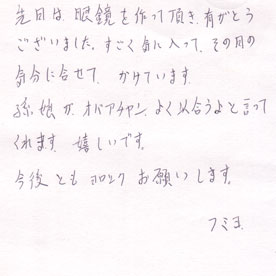 先日は、眼鏡を作って頂き、有がとう
ございました。すごく気に入って、その日の
気分に合せて、かけています。
孫娘が、オバアチャン、よく似合うよと言って
くれます。嬉しいです。
今後とも ヨロシク お願いします。
フミヨ